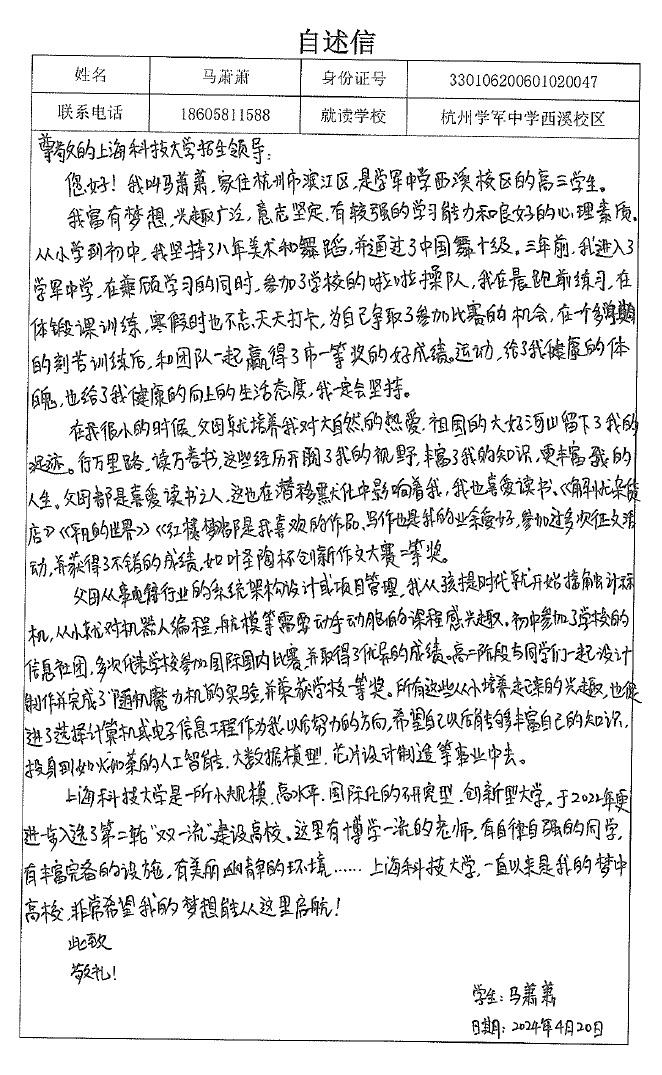 自述信
姓名 马萧萧 身份证号 330106200601020047
联系电话 18605811588 就读学校 杭州学军中学西溪校区
尊敬的上海科技大学招生领导:
您好！我叫马萧萧,家住杭州市滨江区,是学军中学西溪校区的高三学生。
我富有梦想,兴趣广泛,意志坚定,有较强的学习能力和良好的心理素质。
从小学到初中,我坚持了八年美术和舞蹈,并通过了中国舞十级。三年前,我进入了
学军中学,在兼顾学习的同时,参加了学校的啦啦操队,我在晨跑前练习,在
体锻课训练,寒假时也不忘天天打卡,为自己争取了参加比赛的机会,在一个多
的刻苦训练后,和团队一起赢得了市一等奖的好成绩。运动,给了我健康的体
魄,也给了我健康的向上的生活态度,我一定会坚持。
在我很小的时候,父母就培养我对大自然的热爱,祖国的大好河山留下了我的
足迹。行万里路,读万卷书,这些经历开阔了我的视野,丰富了我的知识,更丰富我的
人生。父母都是喜爱读书之人,这也在潜移默化中影响着我,我也喜爱读书、《解忧杂货
店》《平凡的世界》《红楼梦》都是我喜欢的作品。写作也是我的业余爱好,参加过多次征文活
动,并获得了不错的成绩,如叶圣陶杯创新作文大赛二等奖。
父母从事电信行业的系统架构设计或项目管理,我从孩提时代就开始接触计算
机,从小就对机器人编程,航模等需要动手动脑的课程感兴趣。初中参加了学校的
信息社团,多次代表学校参加国际国内比赛,并取得了优异的成绩。高二阶段与同学们一起设计
制作并完成了“随机魔力机的实验,并荣获学校一等奖。所有这些从小培养起来的兴趣,也促
进了选择计算机或电子信息工程作为我以后努力的方向,希望自己以后能够丰富自己的知识,
投身到如火如荼的人工智能、大数据模型、芯片设计制造等事业中去。
上海科技大学是一所小规模、高水平、国际化的研究型、创新型大学。于2022年更
进一步入选了第二轮“双一流”建设高校。这里有博学一流的老师,有自律自强的同学,
有丰富完备的设施,有美丽幽静的环境……上海科技大学,一直以来是我的梦中
高校,非常希望我的梦想能从这里启航！
此致
敬礼！
学生:马萧萧
日期:2024年4月20日